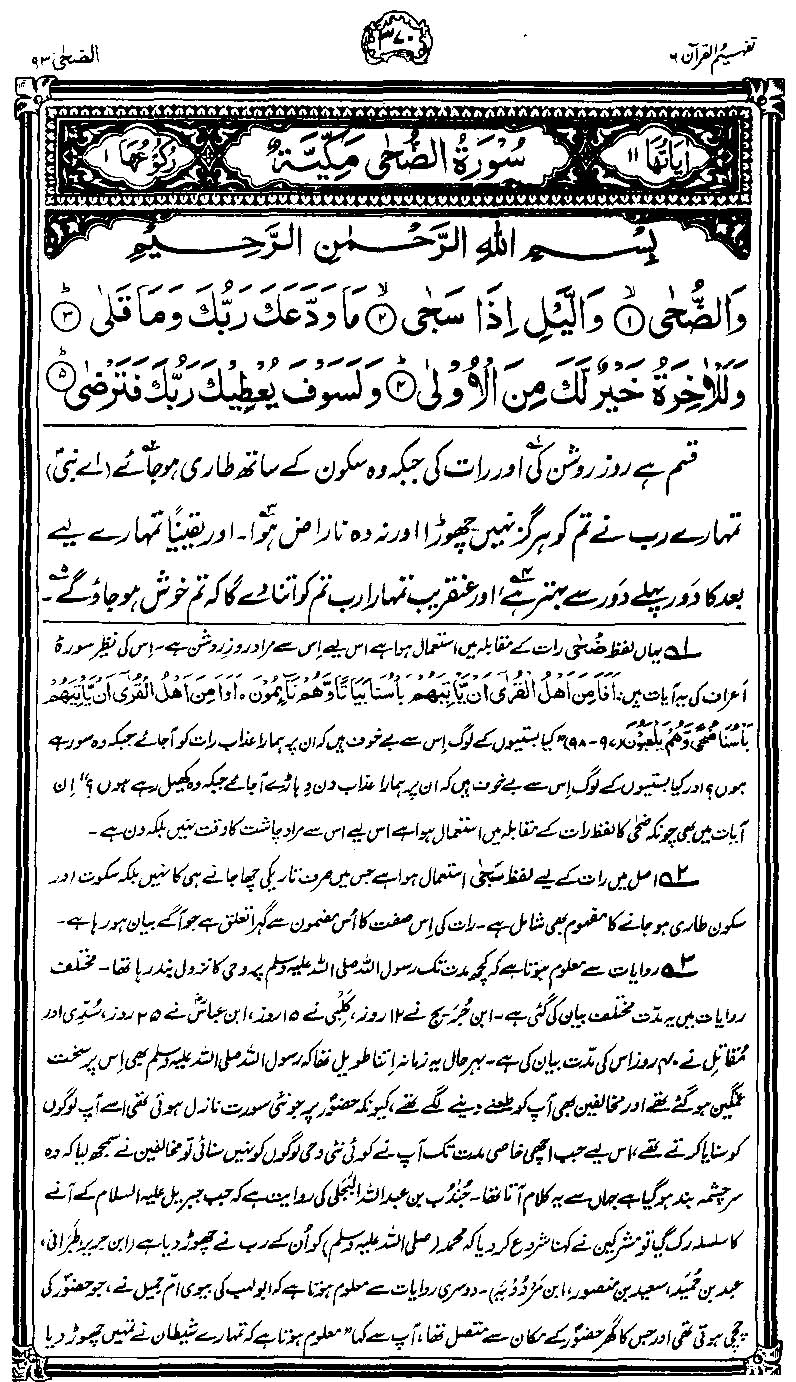 تفہیم القرآن ۶
۳۷۰
الضحیٰ ۹۳
اٰیَاتُهَا ۱۱
سُوْرَةُ الضُّحٰی مَکِّیَّةٌ
رُکُوْعُهَا ۱
بِسْمِ اللّٰهِ الرَّحْمٰنِ الرَّحِیْمِ
وَالضُّحٰی ۱ وَالَّیْلِ اِذَا سَجٰی ۲ مَا وَدَّعَکَ رَبُّکَ وَمَا قَلٰی ۳
وَلَلْاٰخِرَةُ خَیْرٌ لَّکَ مِنَ الْاُوْلٰی ۴ وَلَسَوْفَ یُعْطِیْکَ رَبُّکَ فَتَرْضٰی ۵
قسم ہے روزِ روشن کی ۱ اور رات کی جبکہ وہ سکون کے ساتھ طاری ہو جائے ۲ (اے نبیؐ)
تمہارے رب نے تم کو ہرگز نہیں چھوڑا اور نہ وہ ناراض ہوا ۳۔ اور یقیناً تمہارے لیے
بعد کا دَور پہلے دَور سے بہتر ہے ۴، اور عنقریب تمہارا رب تم کو اتنا دے گا کہ تم خوش ہو جاؤ گے ۵۔
۱ یہاں لفظ ضُحٰی رات کے مقابلہ میں استعمال ہوا ہے اس لیے اِس سے مراد روزِ روشن ہے۔ اِس کی نظیر سورۂ
اَعراف کی یہ آیات ہیں: اَفَاَمِنَ اَهْلُ الْقُرٰٓی اَنْ یَّاْتِیَهُمْ بَاْسُنَا بَیَاتًا وَّهُمْ نَآئِمُوْنَ ہ اَوَاَمِنَ اَهْلُ الْقُرٰٓی اَنْ یَّاْتِیَهُمْ
بَاْسُنَا ضُحًی وَّهُمْ یَلْعَبُوْنَ (۹۷-۹۸) "کیا بستیوں کے لوگ اِس سے بے خوف ہیں کہ ان پر ہمارا عذاب رات کو آ جائے جبکہ وہ سو رہے
ہوں؟ اور کیا بستیوں کے لوگ اِس سے بے خوف ہیں کہ ان پر ہمارا عذاب دن دہاڑے آ جائے جبکہ وہ کھیل رہے ہوں؟" اِن
آیات میں بھی چونکہ ضحٰی کا لفظ رات کے مقابلہ میں استعمال ہوا ہے اس لیے اس سے مراد چاشت کا وقت نہیں بلکہ دن ہے۔
۲ اصل میں رات کے لیے لفظ سَجٰی استعمال ہوا ہے جس میں صرف تاریکی چھا جانے ہی کا نہیں بلکہ سکوت اور
سکون طاری ہو جانے کا مفہوم بھی شامل ہے۔ رات کی اِس صفت کا اُس مضمون سے گہرا تعلق ہے جو آگے بیان ہو رہا ہے۔
۳ روایات سے معلوم ہوتا ہے کہ کچھ مدت تک رسول اللہ صلی اللہ علیہ وسلم پر وحی کا نزول بند رہا تھا۔ مختلف
روایات میں یہ مدت مختلف بیان کی گئی ہے۔ ابن جُرَیج نے ۱۲ روز، کَلْبی نے ۱۵ روز، ابن عباسؓ نے ۲۵ روز، سُدِّی اور
مُقاتِل نے ۴۰ روز اس کی مدت بیان کی ہے۔ بہرحال یہ زمانہ اِتنا طویل تھا کہ رسول اللہ صلی اللہ علیہ وسلم بھی اِس پر سخت
غمگین ہو گئے تھے اور مخالفین بھی آپ کو طعنے دینے لگے تھے، کیونکہ حضورؐ پر جو نئی سورت نازل ہوتی تھی اسے آپ لوگوں
کو سنایا کرتے تھے، اس لیے جب اچھی خاصی مدت تک آپ نے کوئی نئی وحی لوگوں کو نہیں سنائی تو مخالفین نے سمجھ لیا کہ وہ
سرچشمہ بند ہو گیا ہے جہاں سے یہ کلام آتا تھا۔ جُنْدُب بن عبداللہ البَجَلی کی روایت ہے کہ جب جبریل علیہ السلام کے آنے
کا سلسلہ رک گیا تو مشرکین نے کہنا شروع کر دیا کہ محمد (صلی اللہ علیہ وسلم) کو اُن کے رب نے چھوڑ دیا ہے (ابن جریر، طَبَرانی،
عبد بن حُمَید، سعید بن منصور، ابن مَرْدُوْیَہ)۔ دوسری روایات سے معلوم ہوتا ہے کہ ابولہب کی بیوی اُمِّ جمیل نے، جو حضورؐ کی
چچی ہوتی تھی اور جس کا گھر حضورؐ کے مکان سے متصل تھا، آپ سے کہا "معلوم ہوتا ہے کہ تمہارے شیطان نے تمہیں چھوڑ دیا